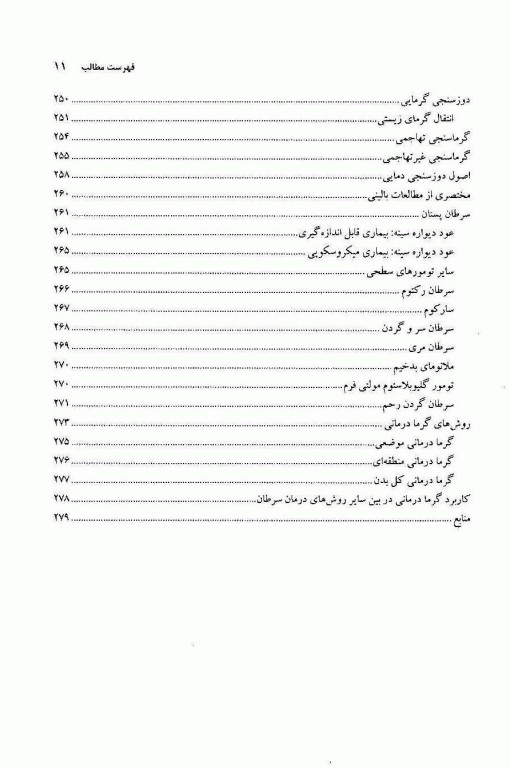 فهرست مطالب ۱۱
دوزسنجی گرمایی ۲۵۰
انتقال گرمای زیستی ۲۵۱
گرماسنجی تهاجمی ۲۵۴
گرماسنجی غیرتهاجمی ۲۵۵
اصول دوزسنجی دمایی ۲۵۸
مختصری از مطالعات بالینی ۲۶۰
سرطان پستان ۲۶۱
عود دیواره سینه: بیماری قابل اندازه‌گیری ۲۶۱
عود دیواره سینه: بیماری میکروسکوپی ۲۶۵
سایر تومورهای سطحی ۲۶۵
سرطان رکتوم ۲۶۶
سارکوم ۲۶۷
سرطان سر و گردن ۲۶۸
سرطان مری ۲۶۹
ملانومای بدخیم ۲۷۰
تومور گلیوبلاستوم مولتی فرم ۲۷۰
سرطان گردن رحم ۲۷۱
روش‌های گرما درمانی ۲۷۳
گرما درمانی موضعی ۲۷۵
گرما درمانی منطقه‌ای ۲۷۶
گرما درمانی کل بدن ۲۷۷
کاربرد گرما درمانی در بین سایر روش‌های درمان سرطان ۲۷۸
منابع ۲۷۹